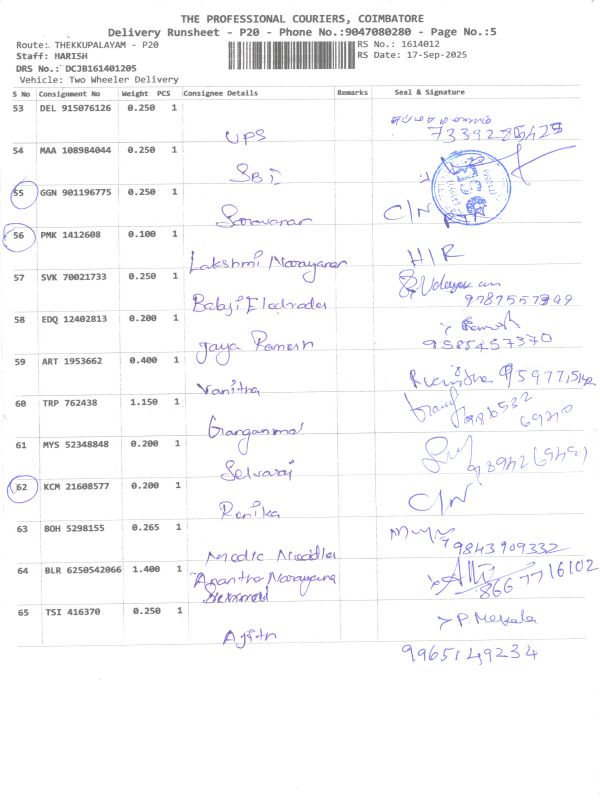 THE PROFESSIONAL COURIERS, COIMBATORE
Delivery Runsheet - P20 - Phone No.:9047080280 - Page No.:5
Route: THEKKUPALAYAM - P20 RS No.: 1614012
Staff: HARISH RS Date: 17-Sep-2025
DRS No.: DCJB161401205
Vehicle: Two Wheeler Delivery
S No Consignment No Weight PCS Consignee Details Remarks Seal & Signature
53 DEL 915076126 0.250 1
UPS
54 MAA 108984044 0.250 1
SBI
55 GGN 901196775 0.250 1
Saravanan C/N
56 PMK 1412608 0.100 1
Lakshmi Narayanan H/R
57 SVK 70021733 0.250 1 Udaya
Babji 9787557349
58 EDQ 12402813 0.200 1 Ramesh
Jaya Ramesh 9585457370
59 ART 1953662 0.400 1
Vanitha
60 TRP 762438 1.150 1
61 MYS 52348848 0.200 1
Selvaraj
62 KCM 21608577 0.200 1
Renika C/N
63 BOH 5298155 0.265 1
9843909332
64 BLR 6250542066 1.400 1
Anantha Narayana 8667716102
65 TSI 416370 0.250 1 P. Mekala
Ajith
9965149234